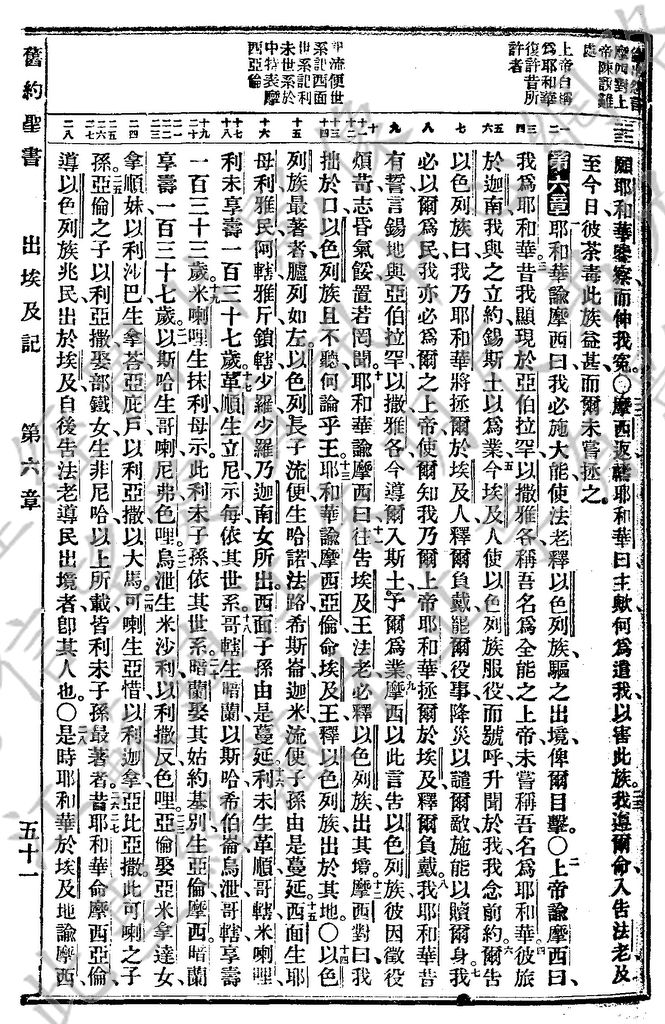 舊約聖書 出埃及記 第六章 五十一
上帝自稱
爲耶和華
復許昔所
許者
願耶和華鑒察而伸我冤〇摩西返禱耶和華曰主歟何爲遣我以害此族我遵爾命入告法老及
至今日彼荼毒此族益甚而爾未嘗拯之
第六章耶和華諭摩西曰我必施大能使法老釋以色列族驅之出境俾爾目擊〇上帝諭摩西曰
我爲耶和華昔我顯現於亞伯拉罕以撒雅各稱吾名爲全能之上帝未嘗稱吾名爲耶和華彼旅
於迦南我與之立約錫斯土以爲業今埃及人使以色列族服役而號呼升聞於我我念前約爾告
以色列族曰我乃耶和華將拯爾於埃及人釋爾負戴罷爾役事降災以譴爾敵施能以贖爾身我
必以爾爲民我亦必爲爾之上帝使爾知我乃爾上帝耶和華拯爾於埃及釋爾負戴我耶和華昔
有誓言錫地與亞伯拉罕以撒雅各今導爾入斯土予爾爲業摩西以此言告以色列族彼因徵役
煩苛志昏氣餒置若罔聞耶和華諭摩西曰往告埃及王法老必釋以色列族出其境摩西對曰我
拙於口以色列族且不聽何論乎王耶和華諭摩西亞倫命埃及王釋以色列族出於其地〇以色
列族最著者臚列如左以色列長子流便生哈諾法路希斯崙迦米流便子孫由是蔓延西面生耶
母利雅民阿轄雅斤鎖轄少羅少羅乃迦南女所出西面子孫由是蔓延利未生革順哥轄米喇哩
利未享壽一百三十七歲革順生立尼示每依其世系哥轄生暗蘭以斯哈希伯崙烏泄哥轄享壽
一百三十三歲米喇哩生抹利母示此利未子孫依其世系暗蘭娶其姑約基別生亞倫摩西暗蘭
享壽一百三十七歲以斯哈生哥喇尼弗色哩烏泄生米沙利以利撒反色哩亞倫娶亞米拿達女
拿順妹以利沙巴生拿荅亞庇戶以利亞撒以大馬可喇生亞惜以利迦拿亞比亞撒此可喇之子
孫亞倫之子以利亞撒娶部鐵女生非尼哈以上所載皆利未子孫最著者昔耶和華命摩西亞倫
導以色列族兆民出於埃及自後告法老導民出境者卽其人也〇是時耶和華於埃及地諭摩西